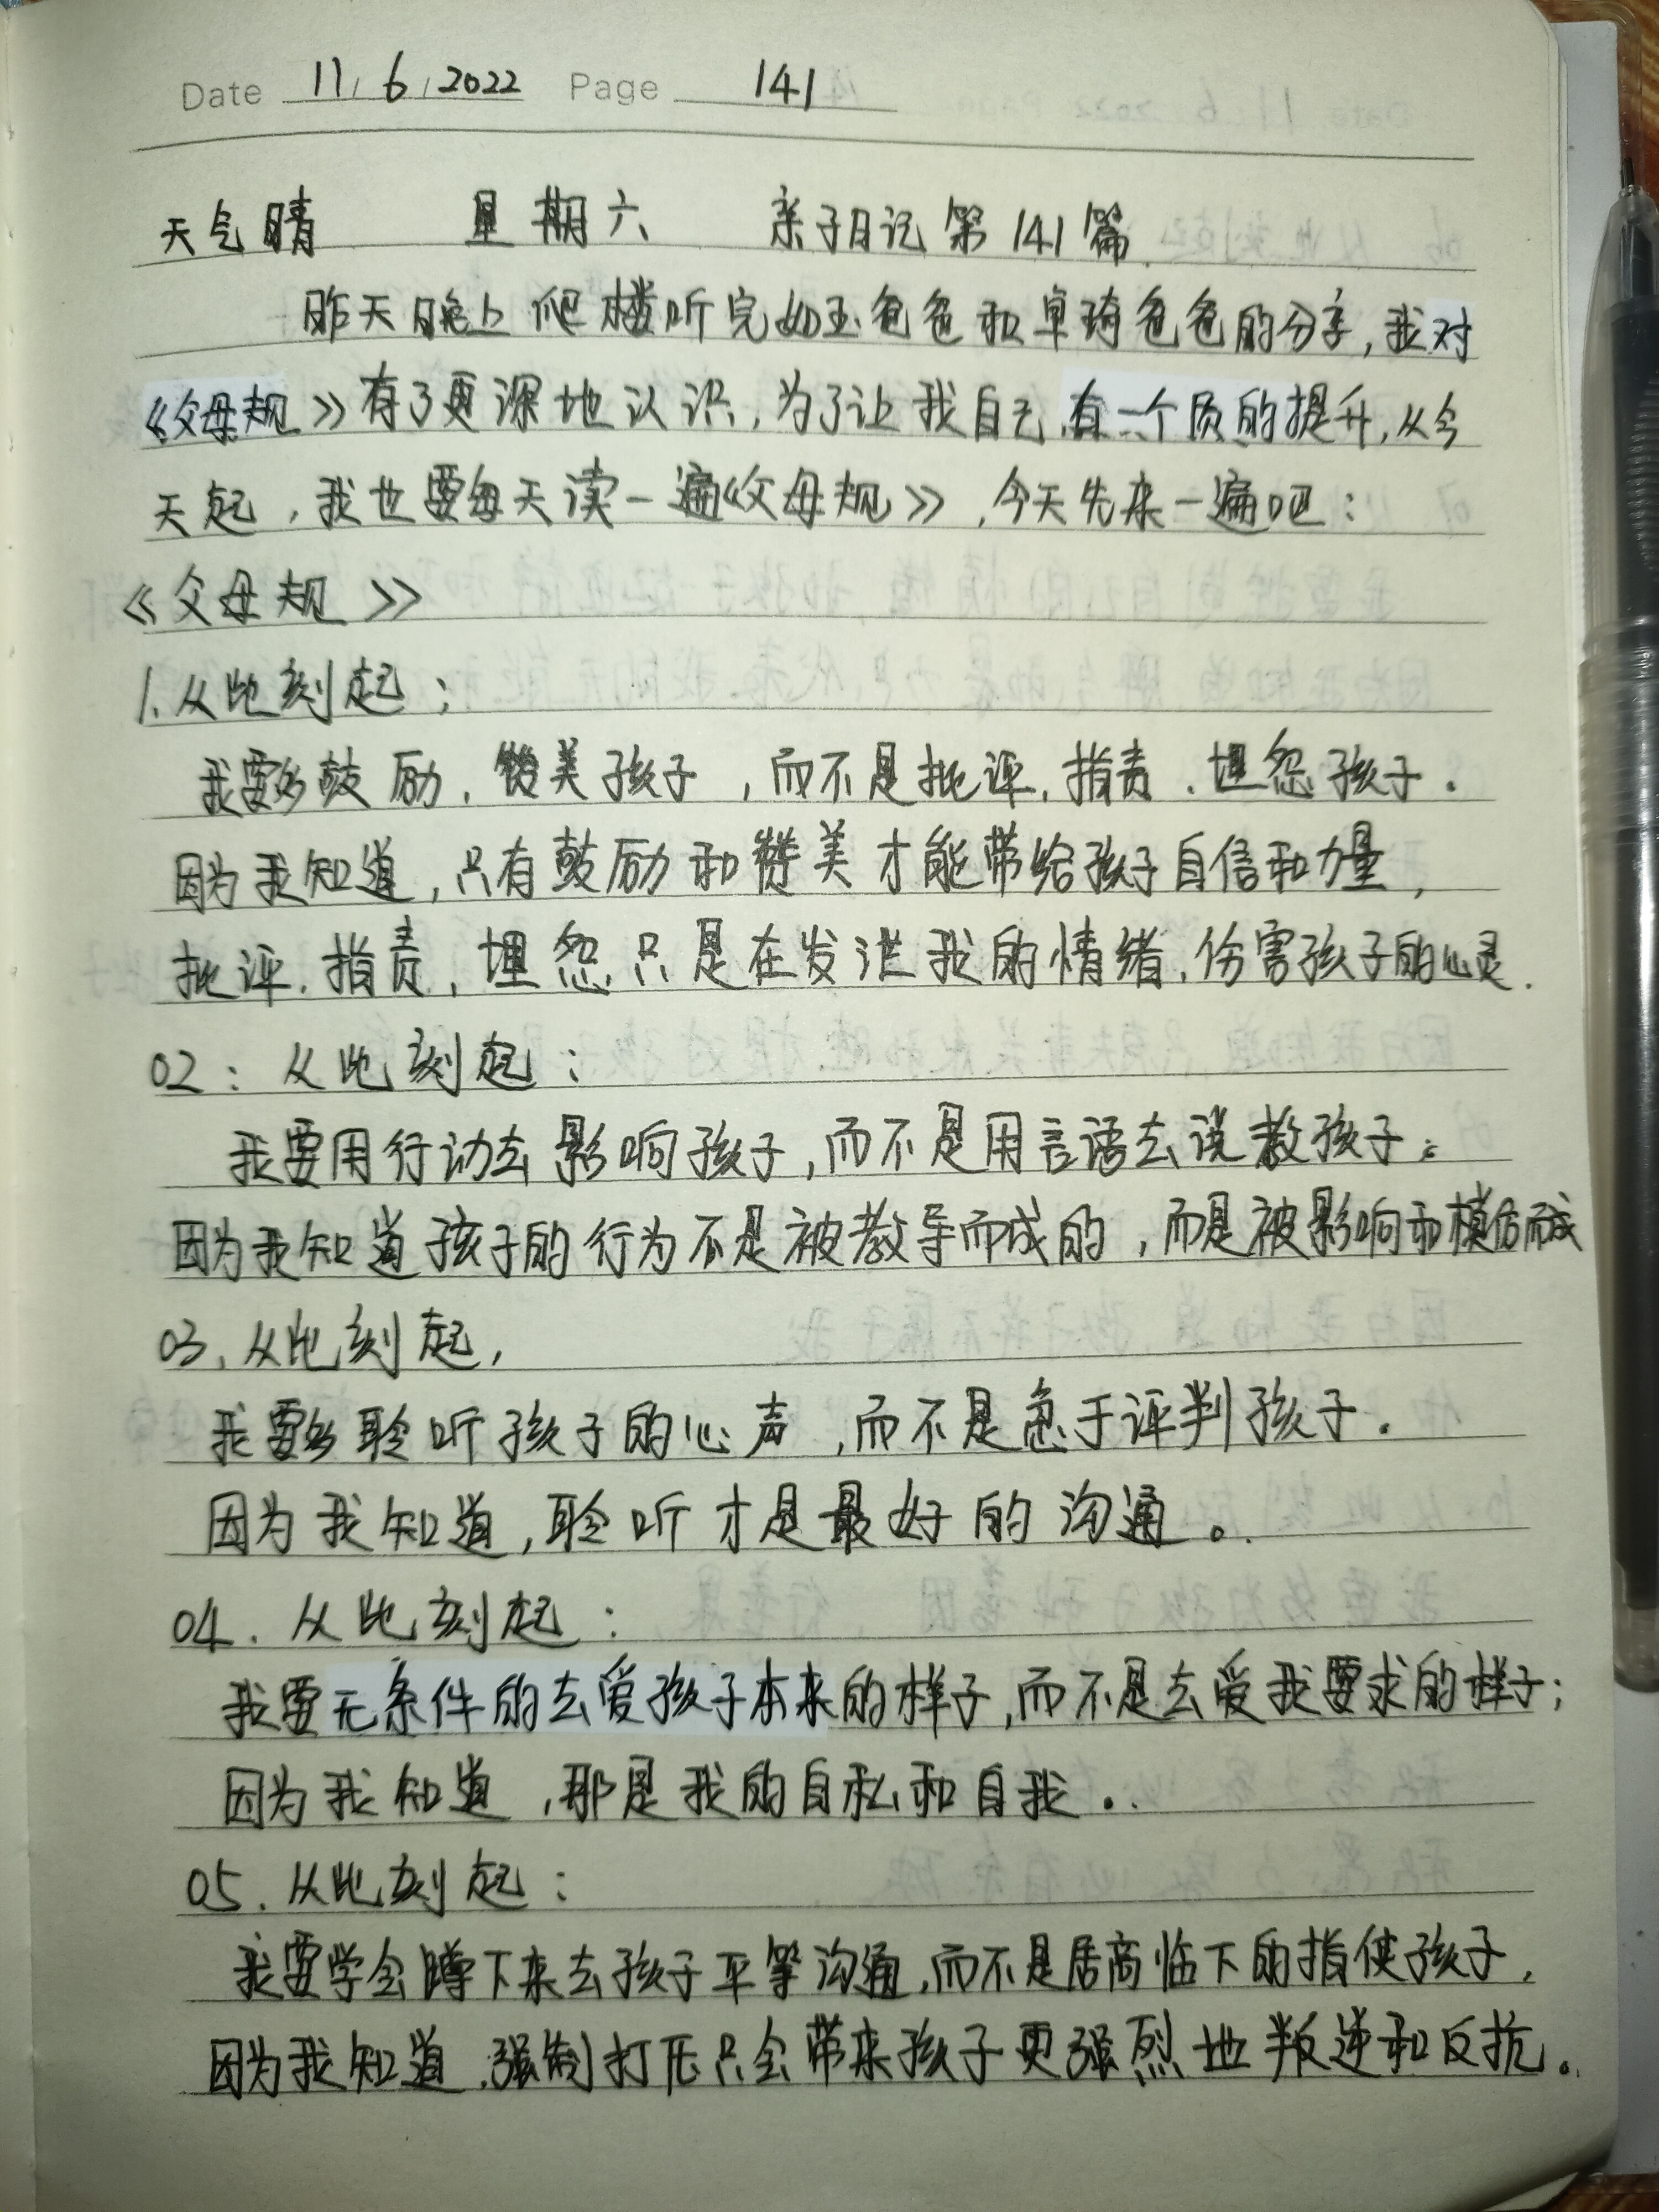 Date 11/6/2022 Page 141
天气晴 星期六 亲子日记第141篇
昨天晚上爬楼听完如玉爸爸和卓琦爸爸的分享,我对
《父母规》有了更深地认识,为了让我自己有一个质的提升,从今
天起,我也要每天读一遍《父母规》,今天先来一遍吧:
《父母规》
1.从此刻起:
我要多鼓励、赞美孩子,而不是批评、指责、埋怨孩子.
因为我知道,只有鼓励和赞美才能带给孩子自信和力量,
批评、指责、埋怨只是在发泄我的情绪,伤害孩子的心灵.
02:从此刻起:
我要用行动去影响孩子,而不是用言语去说教孩子;
因为我知道孩子的行为不是被教导而成的,而是被影响和模仿而成
03.从此刻起,
我要多聆听孩子的心声,而不是急于评判孩子.
因为我知道,聆听才是最好的沟通。
04.从此刻起:
我要无条件的去爱孩子本来的样子,而不是去爱我要求的样子;
因为我知道,那是我的自私和自我..
05.从此刻起:
我要学会蹲下来去孩子平等沟通,而不是居高临下的指使孩子,
因为我知道,强制打压只会带来孩子更强烈地叛逆和反抗。